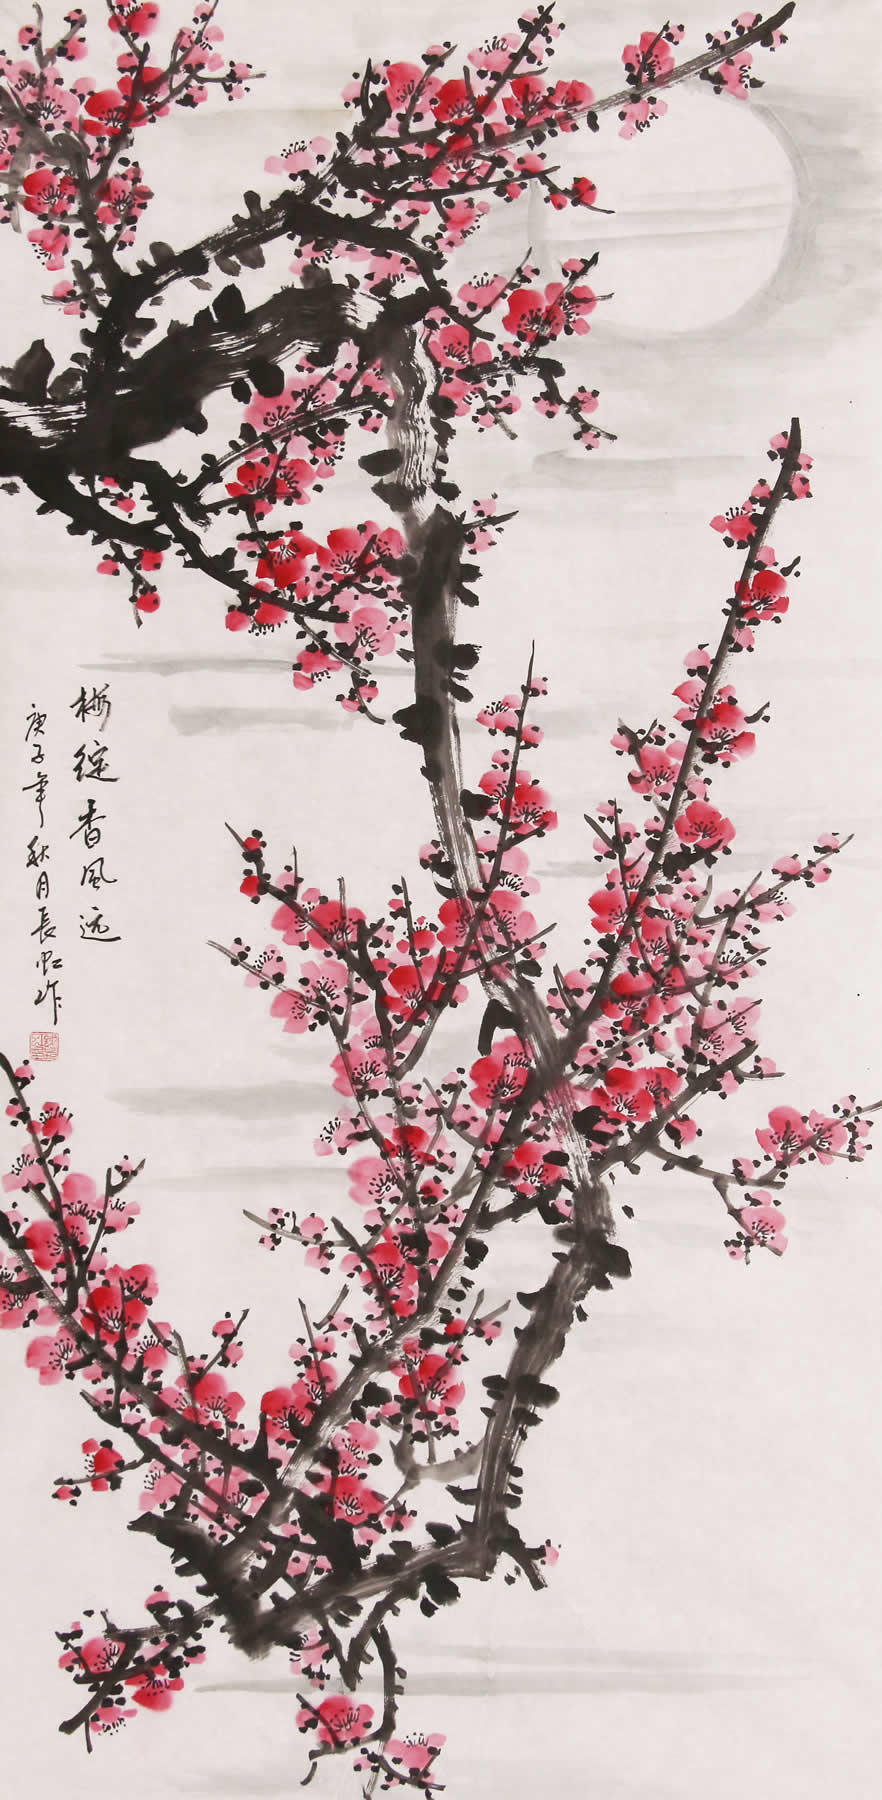 梅绽香风远
庚子年秋月長虹作